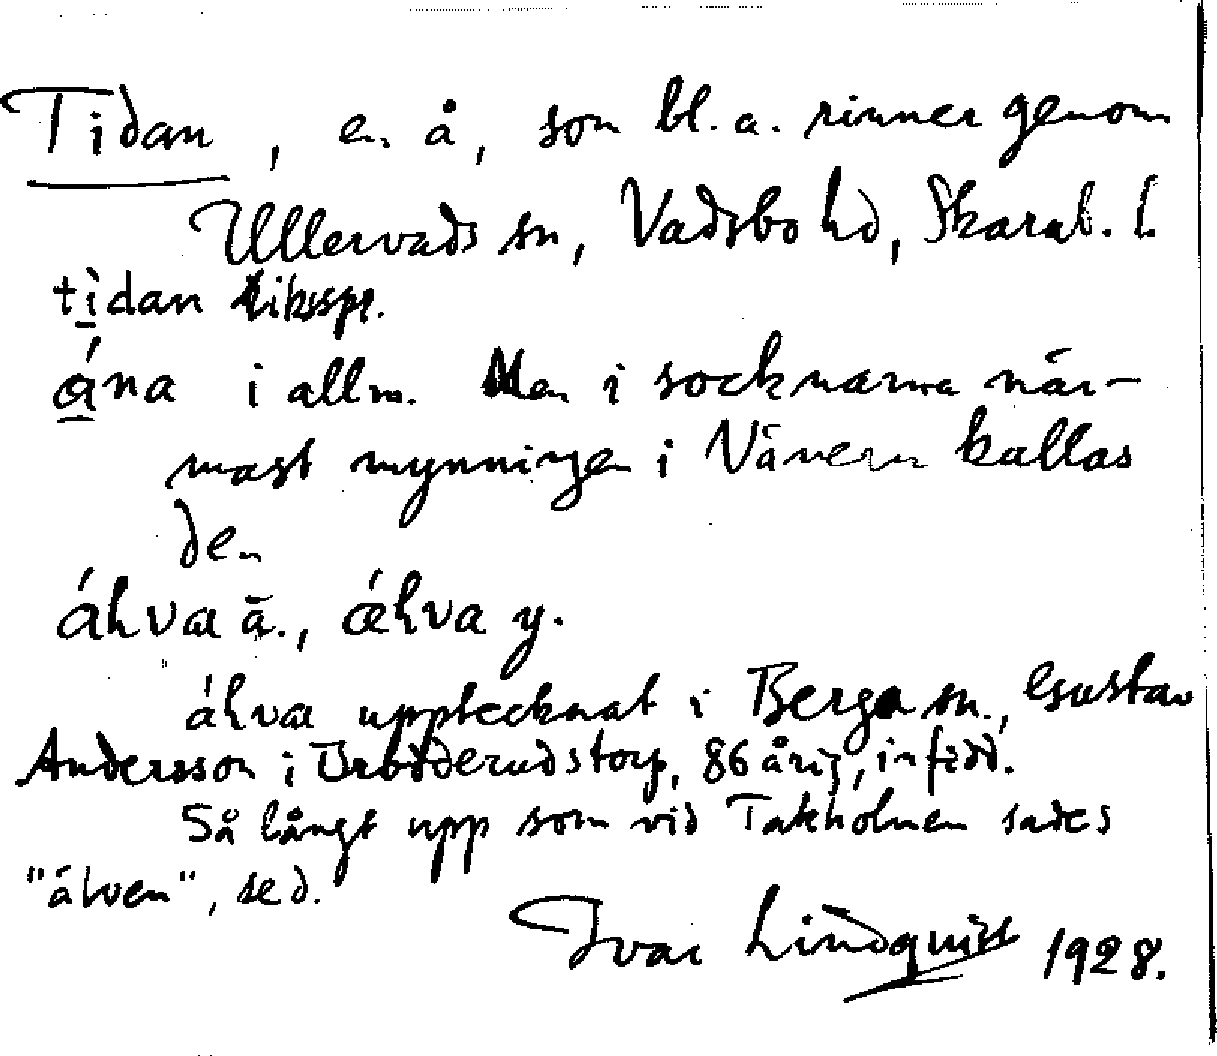 Tidan, en å, som bl. a. rinner genom
Ullervads sn, Vadsbo hd, Skarab. l.
tìdan riksspr.
ána i allm. Men i socknarna när-
mast mynningen i Vänern kallas
den
áhva ä., ǽhva y.
áhva upptecknat i Berga sn., Gustav
Andersson i Brodderudstorp, 86 årig, infödd.
Så långt upp som vid Takholmen sades
"älven", se d.
Ivar Lindquist 1928.